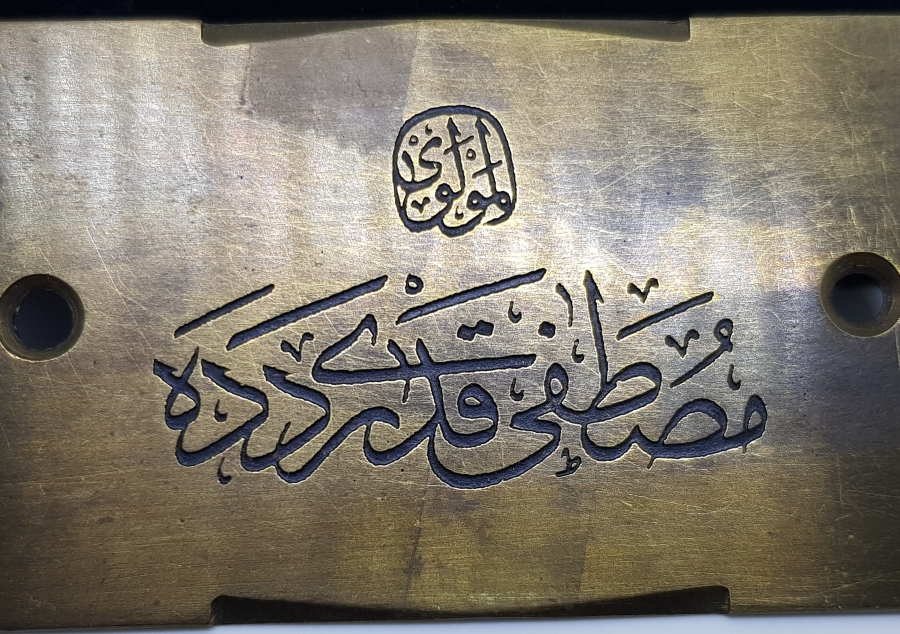 المولوي
مصطفى قدري دده